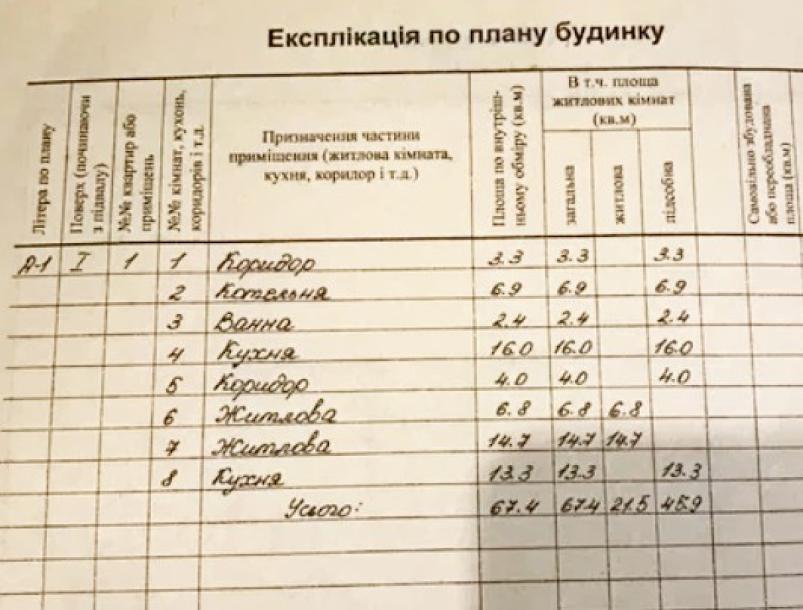 Експлікація по плану будинку
Літера по плану
Поверх (починаючи з підвалу)
№№ квартир або приміщень
№№ кімнат, кухонь, коридорів і т.д.
Призначення частини
приміщення (житлова кімната,
кухня, корилор і т.д.)
Площа по внутріш-
ньому обміру (кв.м)
В т.ч. площа
житлових кімнат
(кв.м)
загальна
житлова
підсобна
Самовільно збудована
або переобладнана
площа (кв.м)
А-1 I 1 1 Коридор 3.3 3.3 3.3
2 Котельня 6.9 6.9 6.9
3 Ванна 2.4 2.4 2.4
4 Кухня 16.0 16.0 16.0
5 Коридор 4.0 4.0 4.0
6 Житлова 6.8 6.8 6.8
7 Житлова 14.7 14.7 14.7
8 Кухня 13.3 13.3 13.3
Усього: 67.4 67.4 21.5 45.9